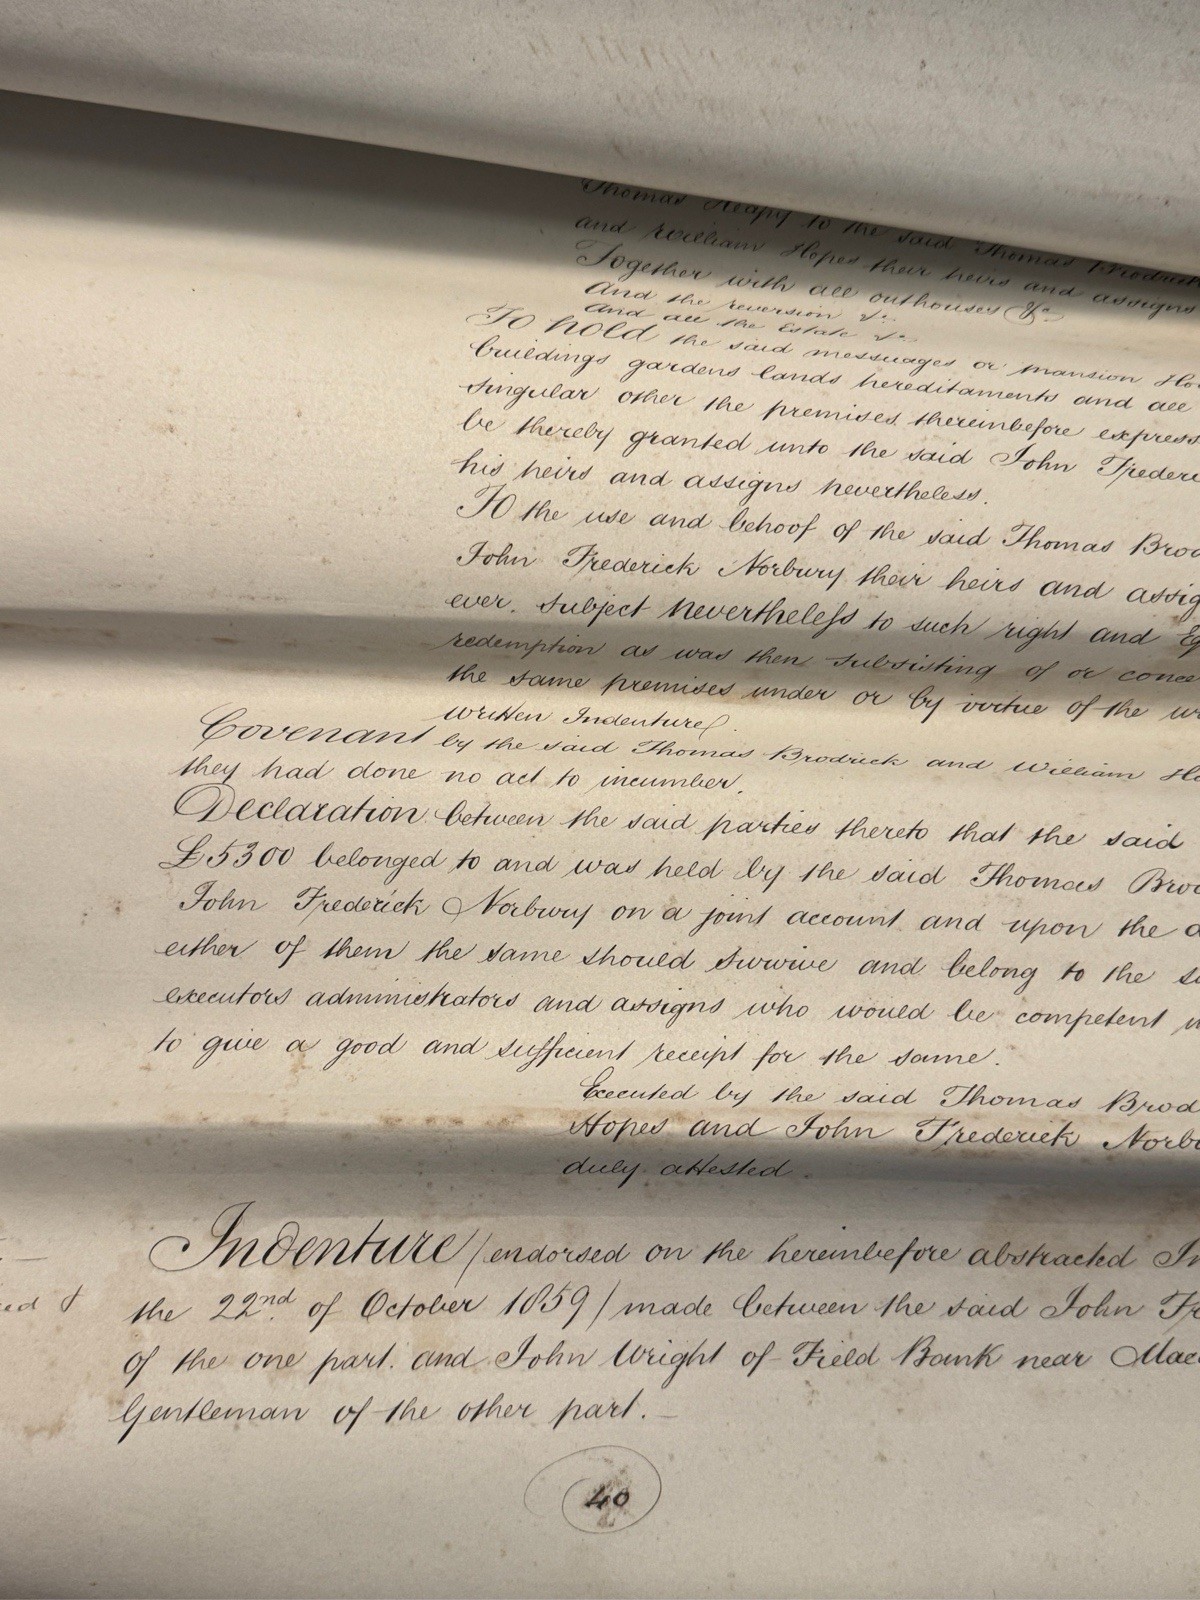 Thomas Heapy to the said Thomas Brodrick
and William Hopes their heirs and assigns
Together with all outhouses &c
And the reversion &c
And all the Estate &c
To hold the said messuages or mansion Ho
buildings gardens lands hereditaments and all
singular other the premises thereinbefore express
be thereby granted unto the said John Frederi
his heirs and assigns nevertheless.
To the use and behoof of the said Thomas Brod
John Frederick Norbury their heirs and assig
ever. subject nevertheless to such right and Eq
redemption as was then subsisting of or conce
the same premises under or by virtue of the w
written Indenture.
Covenant by the said Thomas Brodrick and William Ho
they had done no act to incumber.
Declaration between the said parties thereto that the said
£5300 belonged to and was held by the said Thomas Brod
John Frederick Norbury on a joint account and upon the d
either of them the same should survive and belong to the su
executors administrators and assigns who would be competent
to give a good and sufficient receipt for the same.
Executed by the said Thomas Brod
Hopes and John Frederick Norbu
duly attested.
Indenture /endorsed on the hereinbefore abstracted In
the 22nd. of October 1859/ made between the said John Fr
of the one part. and John Wright of Field Bank near Macc
Gentleman of the other part.
40